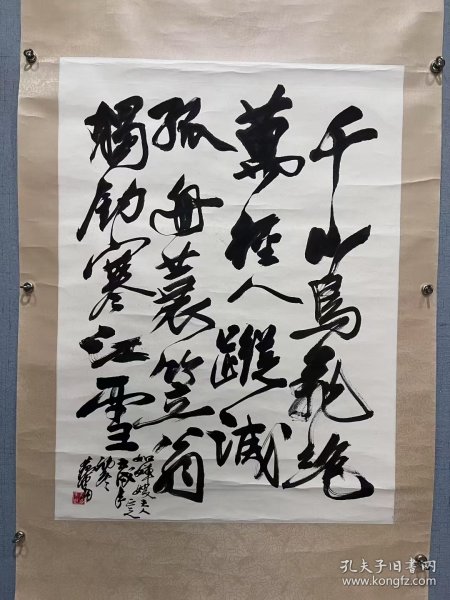 千山鳥飛絶
萬徑人蹤滅
孤舟蓑笠翁
獨釣寒江雪
孔夫子旧书网
www.kongfz.com